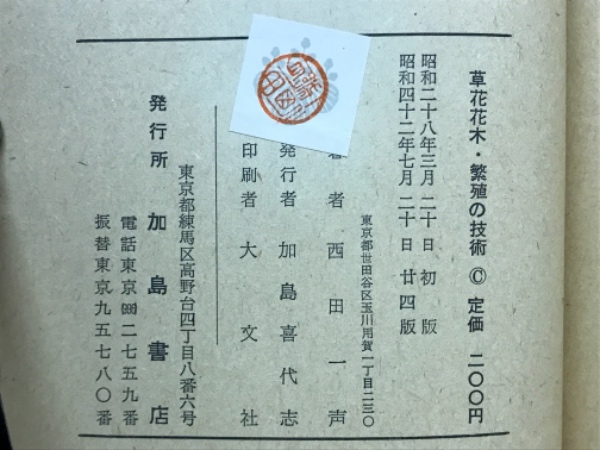 草花花木・繁殖の技術 © 定価 二〇〇円
昭和二十八年三月二十日 初版
昭和四十二年七月二十日 廿四版
東京都世田谷区玉川用賀一丁目二三〇
著者 西田一声
発行者 加島喜代志
印刷者 大文社
東京都練馬区高野台四丁目八番六号
発行所 加島書店
電話東京 二七五九番
振替東京九五七八〇番